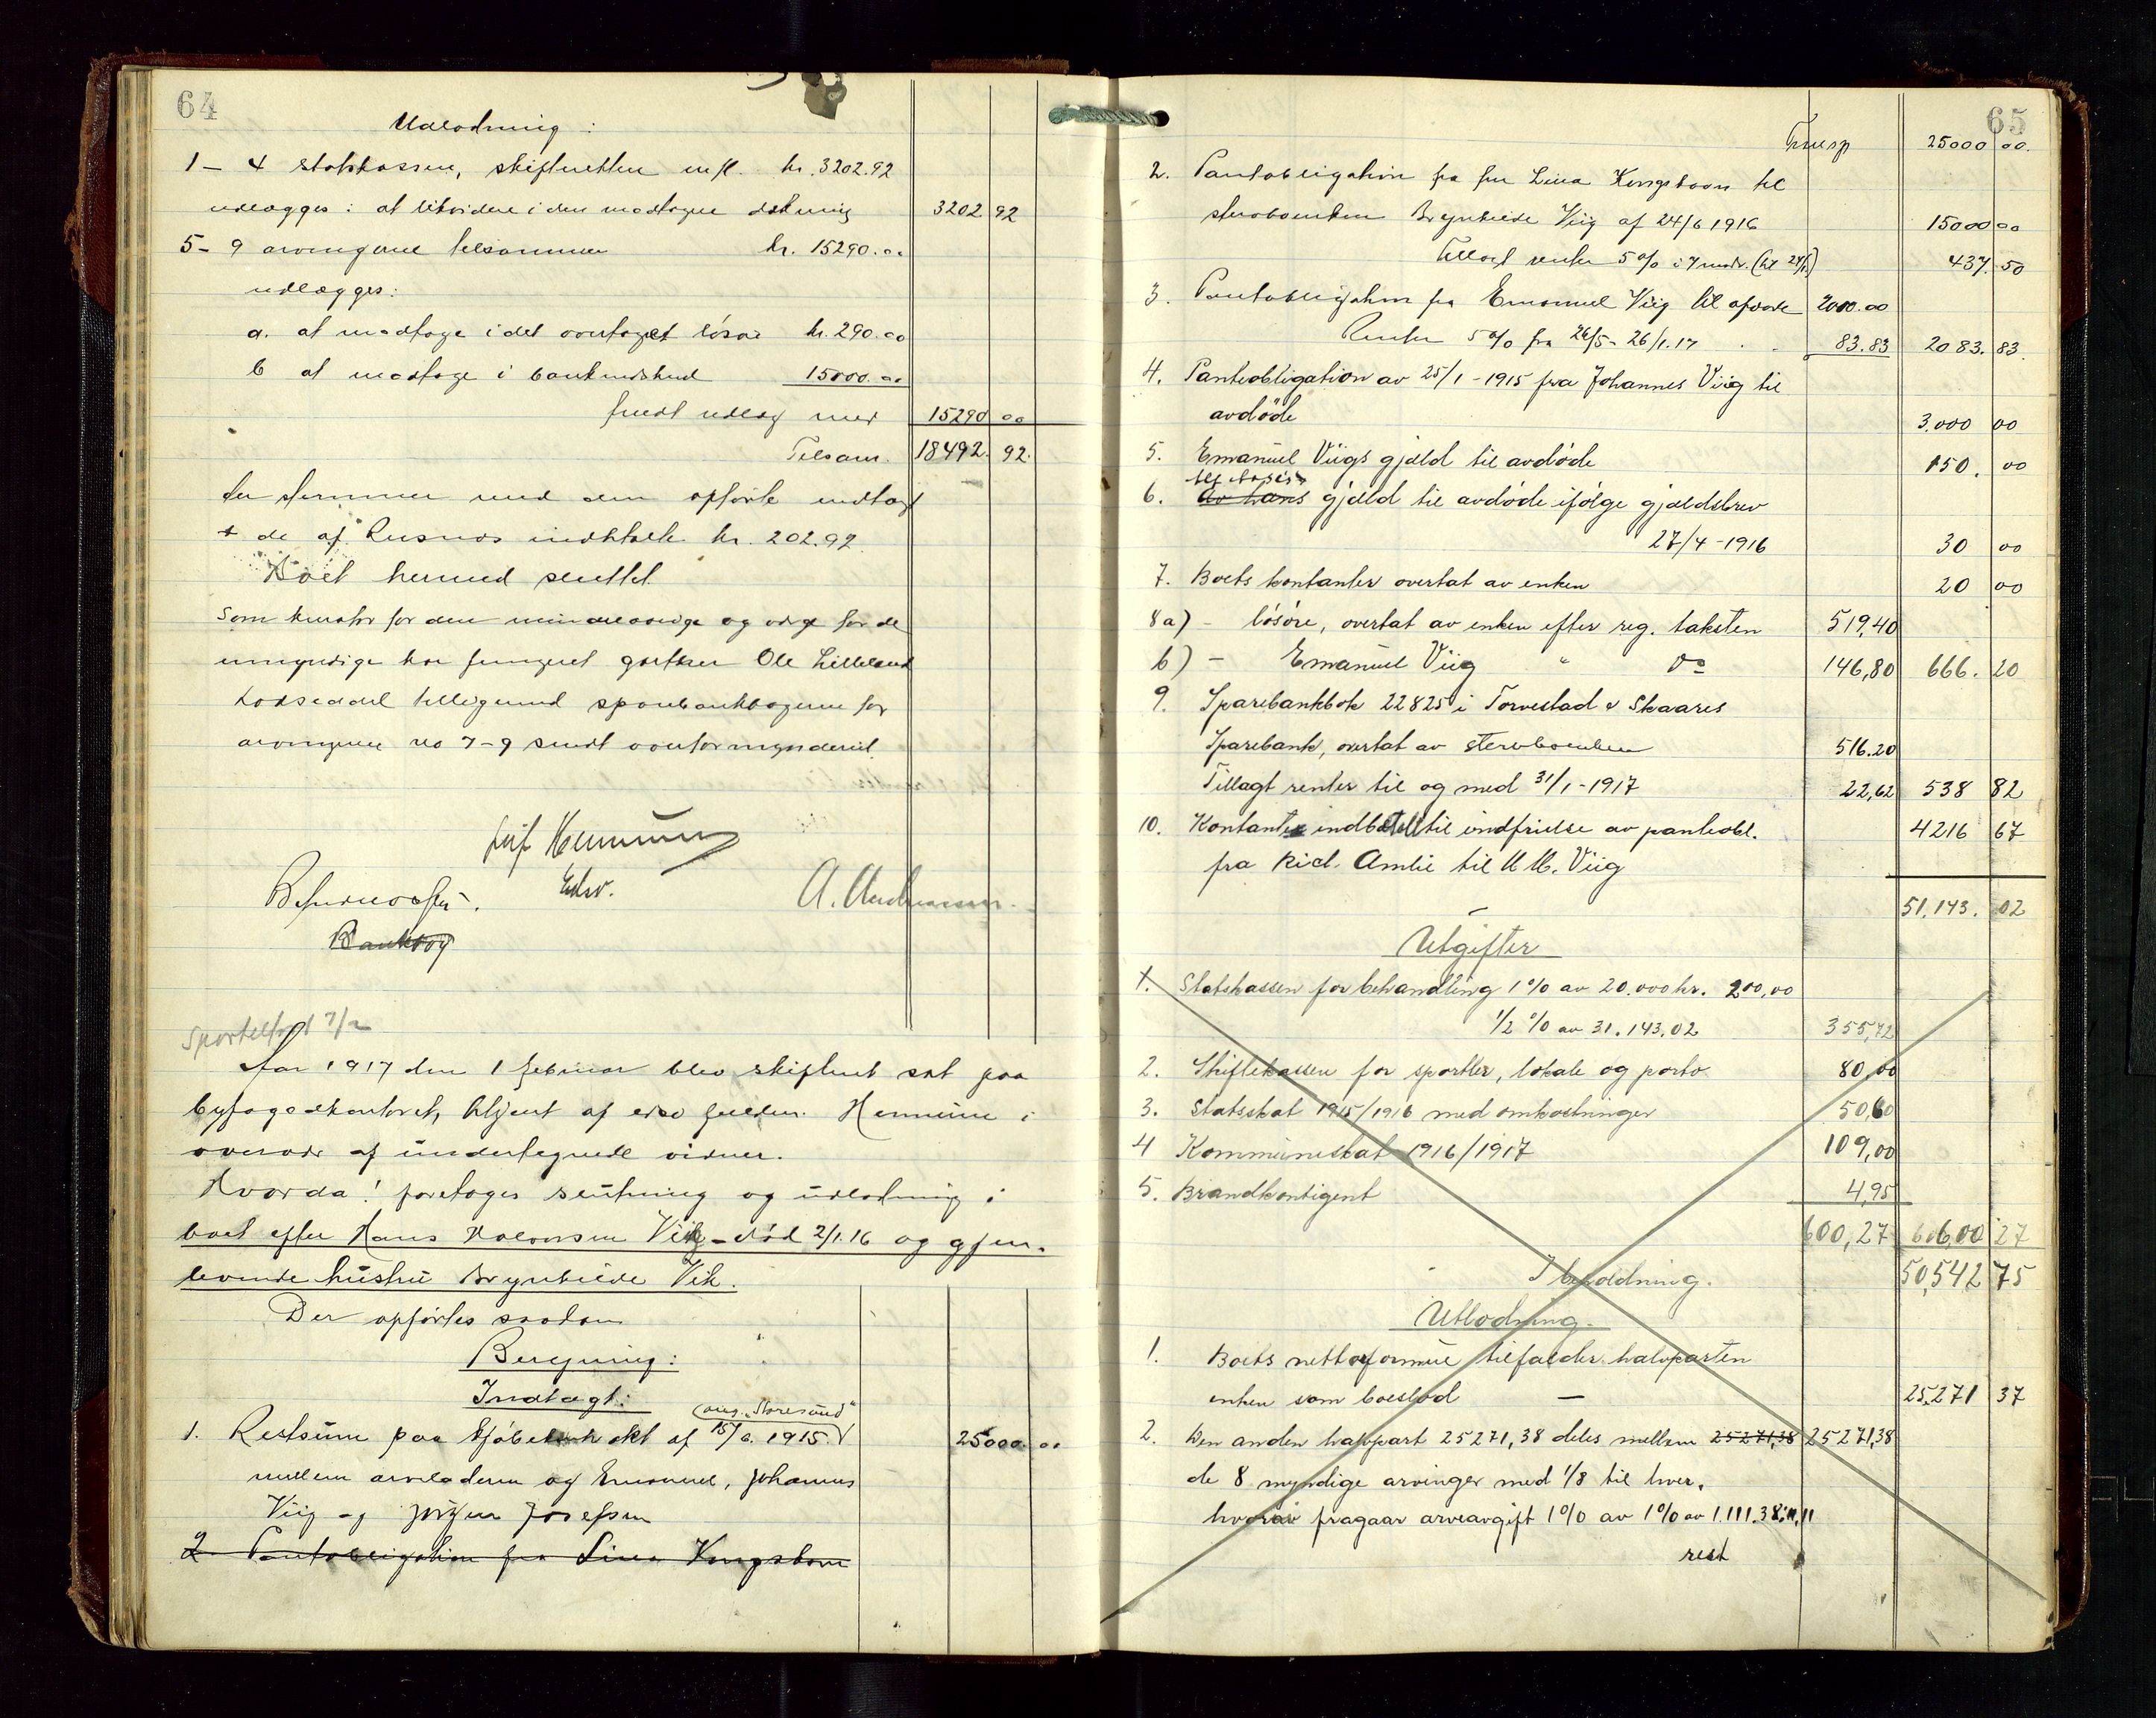 64
Udlodning:
1 – 4 statskassen, skifteretten m fl. kr. 3202.92
udlægges: at likvidere i den modtagne dækning 3202 92
5 – 9 arvingerne tilsammen kr. 15290.00
udlægges:
a. at modtage i det overtaget løsøre kr. 290.00
b at modtage i bankindskud 15000.00
fuldt udlæg med 15290 00
Tilsam. 18492. 92.
der stemmer med den opførte indtægt
+ de af Rusnæs indbetalte kr. 202.92
Boet hermed sluttet
Som kurator for den mindreaarige og verge for de
umyndige har fungeret gartner Ole Lilleland
Lodseddel tilligemed sparebankbøgerne for
arvingerne no 7-9 sendt overformynderiet
A. Andreassen.
edsv.
Bankbog
Sportelført 7/2
Aar 1917 den 1 februar blev skifteret sat paa
byfogedkontoret, betjent af edsv fuldm. Hemmine i
overvær af undertegnede vidner.
Hvorda! foretoges slutning og udlodning i
boet efter Hans Halvorsen Viig – død 2/1.16 og gjen-
levende hustru Brynhilde Vik.
Der opførtes saadan
Beregning:
Indtægt:
(ang. "Storesund"
1. Restsum paa kjøbekontrakt af 15/6. 1915.) 25000. 00
mellem arveladeren og Emanuel, Johannes
Viig og Jørgen Josefsen
2 Pantobligation fra Lina Kongshavn
65
Transp 25000 00.
2. Pantobligation fra fru Lina Kongshavn til
stervboenken Brynhilde Viig af 24/6 1916 15000 00
Tillagt renter 5 % i 7 mndr. (til 24/1) 437. 50
3. Pantobligation fra Emanuel Viig til afdøde 2000.00
Renter 5 % fra 26/5 – 26/1.17 83.83 2083. 83.
4. Panteobligation av 25/1 – 1915 fra Johannes Viig til
avdøde 3.000 00
5. Emanuel Viigs gjæld til avdøde 150. 00
6. Av hans gjæld til avdøde ifølge gjældsbrev
27/4 – 1916 30 00
7. Boets kontanter overtat av enken 20 00
8 a) – løsøre, overtat av enken efter reg. taksten 519,40
b) – Emanuel Viig " do 146,80 666. 20
9. Sparebankbok 22825 i Torvestad & Skaares
Sparebank, overtat av stervboenken 516.20
Tillagt renter til og med 31/1 – 1917 22,62 538 82
10. Kontante indbetalt til indfrielse av panteobl. 4216 67
fra Rich. Amlie til H H. Viig
51,143. 02
Utgifter
1. Statskassen for behandling 1 % av 20.000 kr. 200,00
1/2 % av 31.143.02 355,72
2. Skiftekassen for sportler, lokale og porto 80,00
3. Statsskat 1915/1916 med omkostninger 50,60
4 Kommuneskat 1916/1917 109,00
5. Brandkontigent 4,95
600,27 600 27
I beholdning. 50,542 75
Utlodning.
1. Boets nettoformue tilfalder halvparten
enken som boeslod — 25,271 37
2. Den anden halvpart 25271,38 deles mellem 25271,38 25271,38
de 8 myndige arvinger med 1/8 til hver.
hvorav fragaar arveavgift 1 % av 1 % av 1.111.38: 11,11
rest